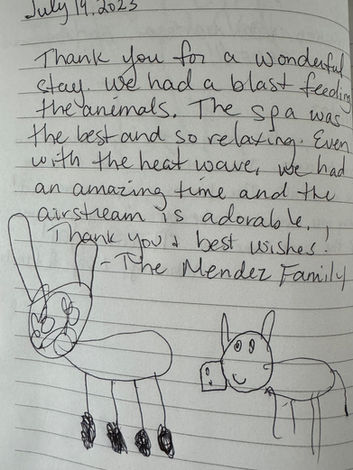 July 19, 2023
Thank you for a wonderful
stay. We had a blast feeding
the animals. The spa was
the best and so relaxing. Even
with the heat wave, we had
an amazing time and the
airstream is adorable.
Thank you & best wishes!
- The Mendez Family